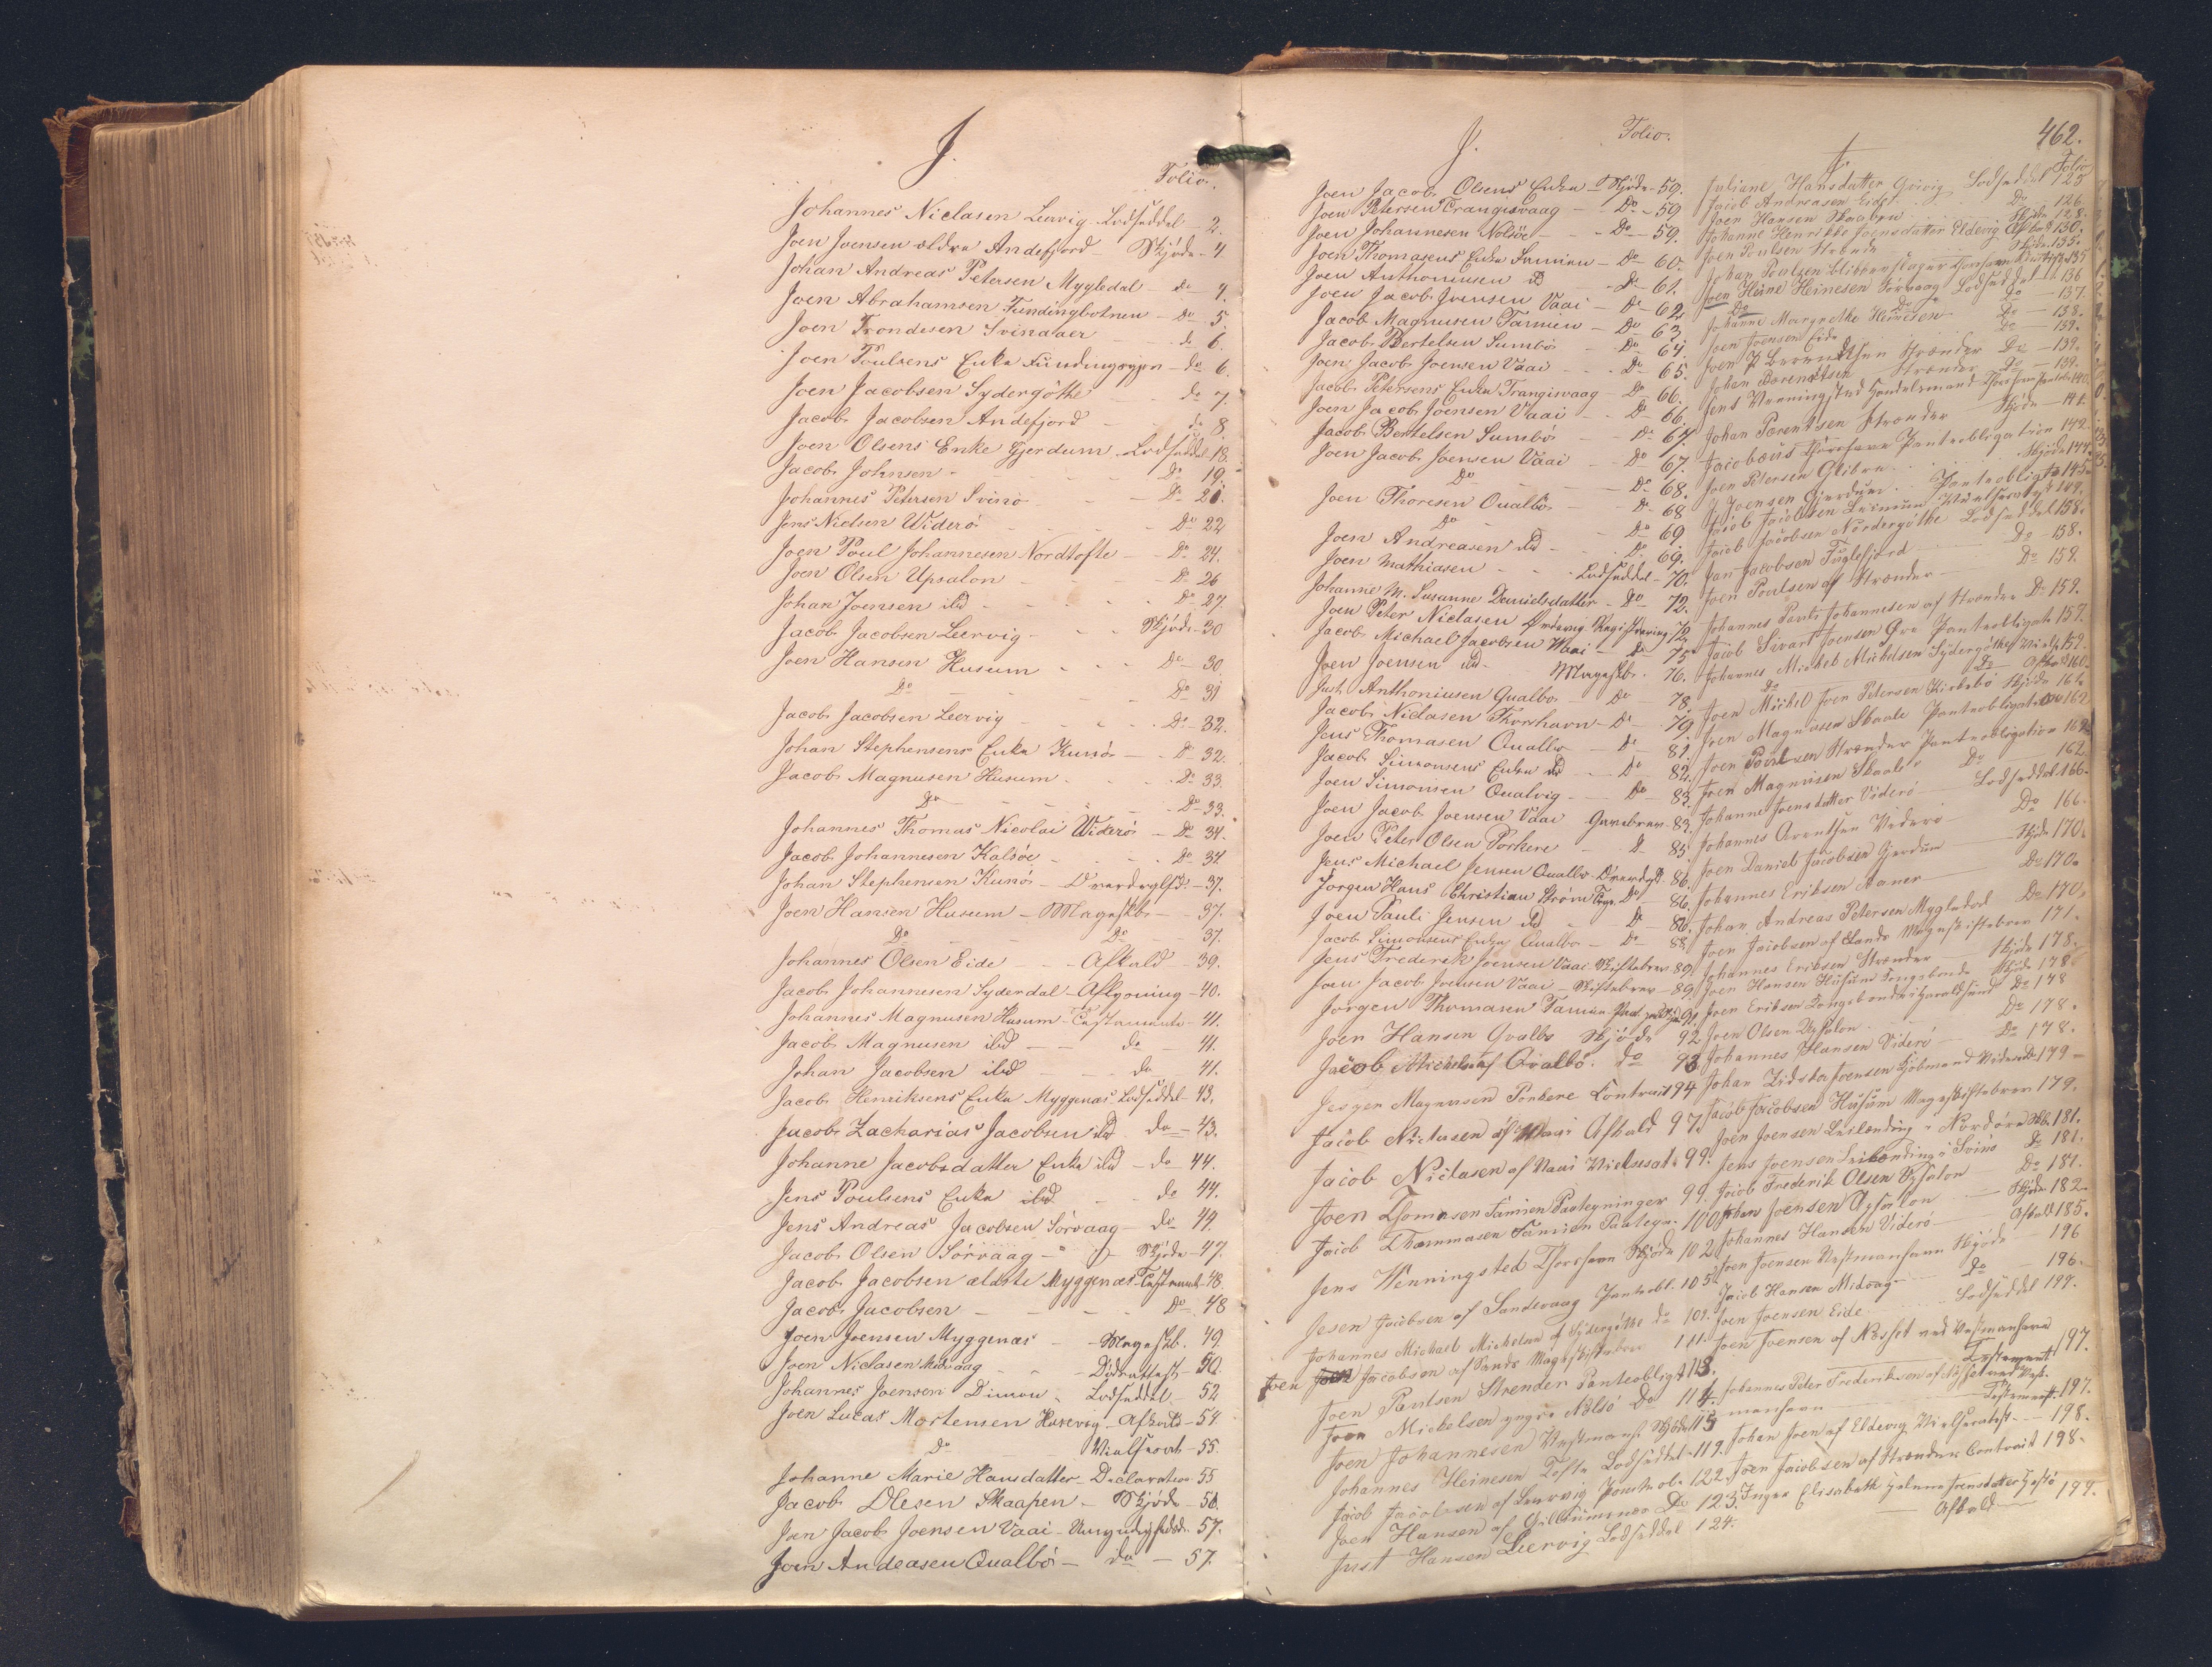 J.
Folio.
Johannes Niclasen Leervig Lodseddel - 2.
Joen Joensen ældre Andefjord - Skjøde - 4
Johan Andreas Petersen Mygledal - do - 4.
Joen Abrahamsen Fundingbotnen - Do 5.
Joen Trondesen Svinaaer - do 6.
Joen Poulsens Enke Fundings - do 6.
Joen Jacobsen Sydergøthe - do 7.
Jacob Jacobsen Andefjord - do 8.
Joen Olsens Enke Gjerdum Lodseddel 18.
Jacob Johnsen - Do 19.
Johannes Petersen Svinø - Do 21.
Jens Nielsen Widerø - Do 22
Joen Poul Johannesen Nordtofte - Do 24.
Joen Olsen Upsalon - Do 26
Johan Joensen ibd - Do 27.
Jacob Jacobsen Leervig - Skjøde - 30
Joen Hansen Husum - Do 30.
Do - Do 31
Jacob Jacobsen Leervig - Do 32.
Johan Stephensens Enke Kunø - Do 32.
Jacob Magnusen Husum - Do 33.
Do - Do 33.
Johannes Thomas Nicolai Widerø - Do 34.
Jacob Johannesen Kalsøe - Do 34
Johan Stephensen Kunø - 37.
Joen Hansen Husum - Mageskb - 37.
Do - Do - 37.
Johannes Olsen Eide - Afkald - 39.
Jacob Johannesen Syderdal - Aflysning - 40.
Johannes Magnusen Husum - Testamente - 41.
Jacob Magnusen ibd - do - 41.
Johan Jacobsen ibd - do - 41.
Jacob Henriksens Enke Myggenæs Lodseddel 43.
Jacob Zacharias Jacobsen ibd do - 43.
Johanne Jacobsdatter Enke ibd - do 44.
Jens Poulsens Enke ibd - do 44.
Jens Andreas Jacobsen Sørvaag - do 44.
Jacob Olsen Sørvaag - Skjøde - 47.
Jacob Jacobsen ældste Myggenæs Testament 48.
Jacob Jacobsen - Do 48
Joen Joensen Myggenæs - Mageskb. 49.
Joen Niclasen Midvaag - Dødsattest - 50.
Johannes Joensen Dimon - Lodseddel - 52
Joen Lucas Mortensen Husevig - Afkald - 54.
Do Vielsesat - 55.
Johanne Marie Hansdatter - Declaration 55
Jacob Olesen Skaapen - Skjøde - 56.
Joen Jacob Joensen Vaai - 57.
Joen Andreasen Qualbø - do - 57.
J.
Folio.
Joen Jacob Olsens Enke - Skjøde - 59.
Joen Petersen Trangisvaag - Do - 59
Joen Johannesen Nolsøe - Do - 59.
Joen Thomasens Enke Sumien - Do 60.
Joen Anthoniusen ibd - Do 61.
Joen Jacob Joensen Vaai - Do 62.
Jacob Magnusen Famien - Do 63.
Jacob Bertelsen Sumbø - Do 64.
Joen Jacob Joensen Vaai - Do 65.
Jacob Petersens Enke Trangisvaag - Do 66.
Joen Jacob Joensen Vaai - Do 66.
Jacob Bertelsen Sumbø - Do 67.
Joen Jacob Joensen Vaai - Do 67.
Do - Do 68.
Joen Thoresen Qualbø - Do 68
Do - Do 69.
Joen Andreasen ibd - Do 69.
Joen Mathiasen - Lodseddel - 70.
Johanne M. Susanne Danielsdatter - Do 72.
Joen Peter Niclasen Registrering 72.
Jacob Michael Jacobsen Waai - Do 75
Joen Joensen ibd - Mageskb. 76.
Just Anthoniusen Qualbø Do - 78.
Jacob Niclasen Thorshavn - Do - 79.
Jens Thomasen Qualbø - Do 81.
Jacob Simonsens Enke ibd - Do 82.
Joen Simonsen Qualvig - Do - 83.
Joen Jacob Joensen Vaai Gavebrev 83.
Joen Peter Olsen Porkere - Do 85.
Jens Michael Jensen Qualbø 86.
Jørgen Hans Christian Strøm Do - 86.
Joen Pauli Jensen ibd - Do - 86.
Jacob Simonsens Enke Qualbø - Do 88.
Jens Frederik Joensen Vaai Skiftebrev 89.
Joen Jacob Joensen Vaai - Skiftebrev 89.
Jørgen Thomasen Famien 91.
Joen Hansen Qvalbø Skjøde 92
Jacob Michelsen af Qvalbø do 93
Jesper Magnusen Porkere Contract 94
Jacob Niclasen af Waai Afkald 97.
Jacob Niclasen af Vaai Vielsesat. 99.
Joen Thomasen Famien Paategninger 99.
Jacob Thommasen Famien Paategn. 100
Jens Wenningsted Thorshavn Skjøde 102
Jesen Jacobsen af Sandevaag Panteobl. 105.
Johannes Michael Michelsen af Sydergøthe do 109.
Joen Jacobsen af Sands Mageskiftebrev 111.
Joen Paulsen Strender Panteobligt 113.
Joen Michelsen yngre Nolsø Do 114.
Joen Johannesen Vestmanh Skjøde 115
Johannes Heinesen Tofte Lodseddel 119.
Jacob Jacobsen af Leervig Panteob. 122.
Joen Hansen af Do 123.
Just Hansen Leervig Lodseddel 124.
462.
J.
Folio
Juliane Hansdatter Qvivig Lodseddel 125
Jacob Andreasen Eide Do 126.
Joen Hansen Skaalen Skjøde 128.
Johanne Henrikke Joensdatter Eldevig Afkald 130.
Joen Poulsen Strende Skjøde 135.
Johan Poulsen Thorshavn 135
Joen Heine Heinesen Sørvaag Lodseddel 136
Do Do 137.
Johanne Margrethe Heinesen Do 138.
Joen Joensen Eide do 139.
Joen P. Berendtsen Strænder Do 139.
Johan Berendtsen Strænder Do 139.
Jens Wenningsted Handelsmand Thorshavn 140.
Johan Parentsen Strænder Skjøde 141.
Jacobæus Thorshavn Panteobligation 142.
Joen Petersen Glibre Skjøde 144.
J. Joensen Gjerdum Panteobligt 145.
Jacob Jacobsen 149.
Jacob Jacobsen Nordergøthe Lodseddel 158.
Jan Jacobsen Fuglefjord Do 158.
Joen Poulsen af Strænder Do 159.
Johannes Pauli Johannesen af Strænder Do 159.
Jacob Sivart Joensen Øre Panteobligat. 159.
Johannes Michel Michelsen Sydergøthe 159.
Do Do Afkald 160.
Joen Michel Joen Petersen Kirkebø Skjøde 161.
Joen Magnusen Skaale Panteobligation 162
Joen Poulsen Strænder Panteobligation 162
Joen Magnusen Skaale Do 162.
Johanne Joensdatter Viderø Lodseddel 166.
Johannes Arentsen Viderø Do 166.
Joen Daniel Jacobsen Gjerdum Skjøde 170.
Johannes Eriksen Aaner Do 170.
Johan Andreas Petersen Mygledal Do 170.
Joen Jacobsen af Sande Mageskiftebrev 171.
Johannes Eriksen Strænder Skjøde 178.
Joen Hansen Husum Kongsbonde Skjøde 178
Joen Eriksen Kongsbonde i Haraldsund Do 178
Joen Olsen Upsalon Do 178.
Johannes Hansen Viderø Do 178.
Johan Joensen Kjøbmand Viderø Do 179
Jacob Jacobsen Husum Mageskiftebrev 179.
Joen Joensen Leilænding i Nordøre 181.
Jens Joensen Leilænding i Svinø Do 181.
Jacob Frederik Olsen Upsalon Do 181.
Johan Joensen Upsalon Skjøde 182
Johannes Hansen Viderø Afkald 185.
Joen Joensen Vestmanhavn Skjøde 196
Jacob Hansen Midvaag Do 196.
Joen Joensen Eide Lodseddel 197.
Joen Joensen af Næsset ved Vestmanhavn
Testament 197.
Johannes Peter Frederiksen af Næsset ved Vest-
manhavn Testament. 197.
Johan Joen af Eldevig Vielsesattest 198.
Joen Jacobsen af Strænder Contract 198.
Inger Elisabeth Helene Joensdatter Hestø
Afkald 199.